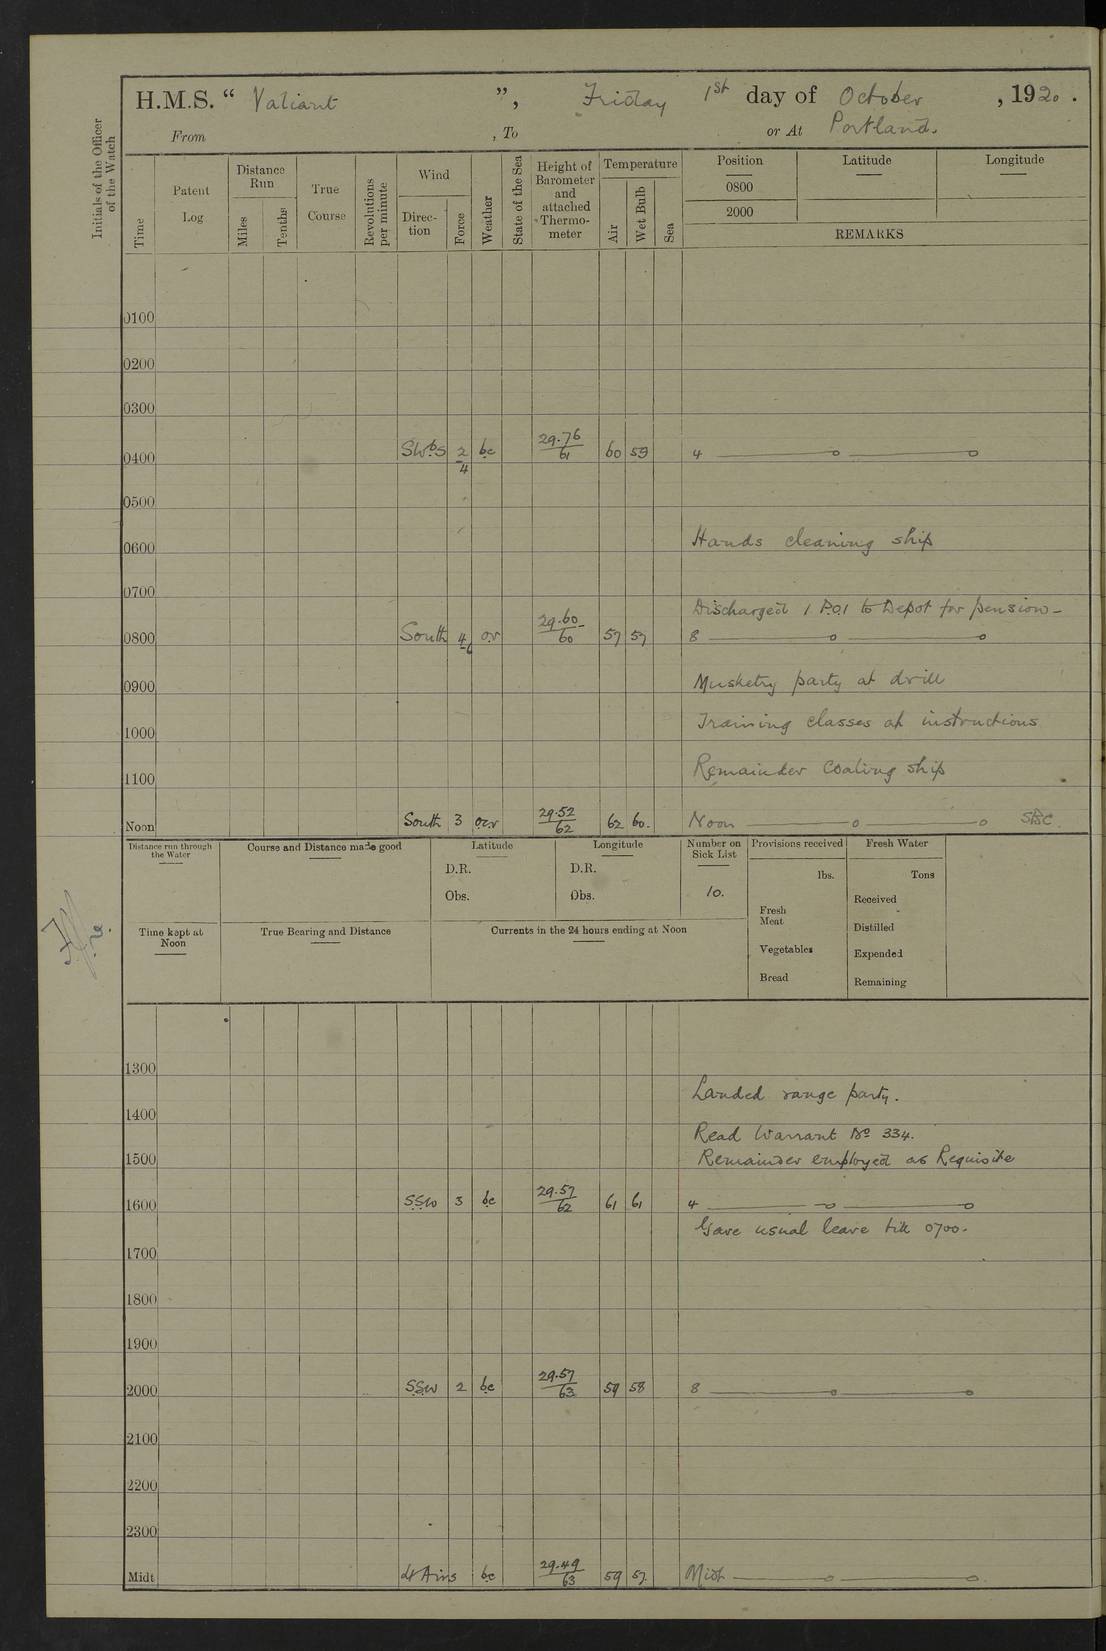 H.M.S. “ Valiant ”, Friday 1st day of October , 1920.
From , To or At Portland.
Initials of the Officer of the Watch
Time
Patent Log
Distance Run
Miles
Tenths
True Course
Revolutions per minute
Wind
Direction
Force
Weather
State of the Sea
Height of Barometer and attached Thermometer
Temperature
Air
Wet Bulb
Sea
Position Latitude Longitude
0800
2000
REMARKS
0100
0200
0300
0400 SWbS 2/4 bc 29.76/61 60 59 4
0500
0600 Hands cleaning ship
0700
Discharged 1 P.O.1 to Depot for pension
0800 South 4/6 or 29.60/60 57 57 8
0900 Musketry party at drill
1000 Training classes at instructions
1100 Remainder Coaling ship
Noon South 3 ocr 29.52/62 62 60. Noon
Distance run through the Water
Course and Distance made good
Latitude
D.R.
Obs.
Longitude
D.R.
Obs.
Number on Sick List
10.
Provisions received
lbs.
Fresh Meat
Vegetables
Bread
Fresh Water
Tons
Received
Distilled
Expended
Remaining
Time kept at Noon
True Bearing and Distance
Currents in the 24 hours ending at Noon
1300
Landed range party.
1400
Read Warrant No 334.
1500 Remainder employed as Requisite
1600 SSW 3 bc 29.57/62 61 61 4
Gave usual leave till 0700.
1700
1800
1900
2000 SSW 2 bc 29.57/63 59 58 8
2100
2200
2300
Midt Lt Airs bc 29.49/63 59 57 Midt